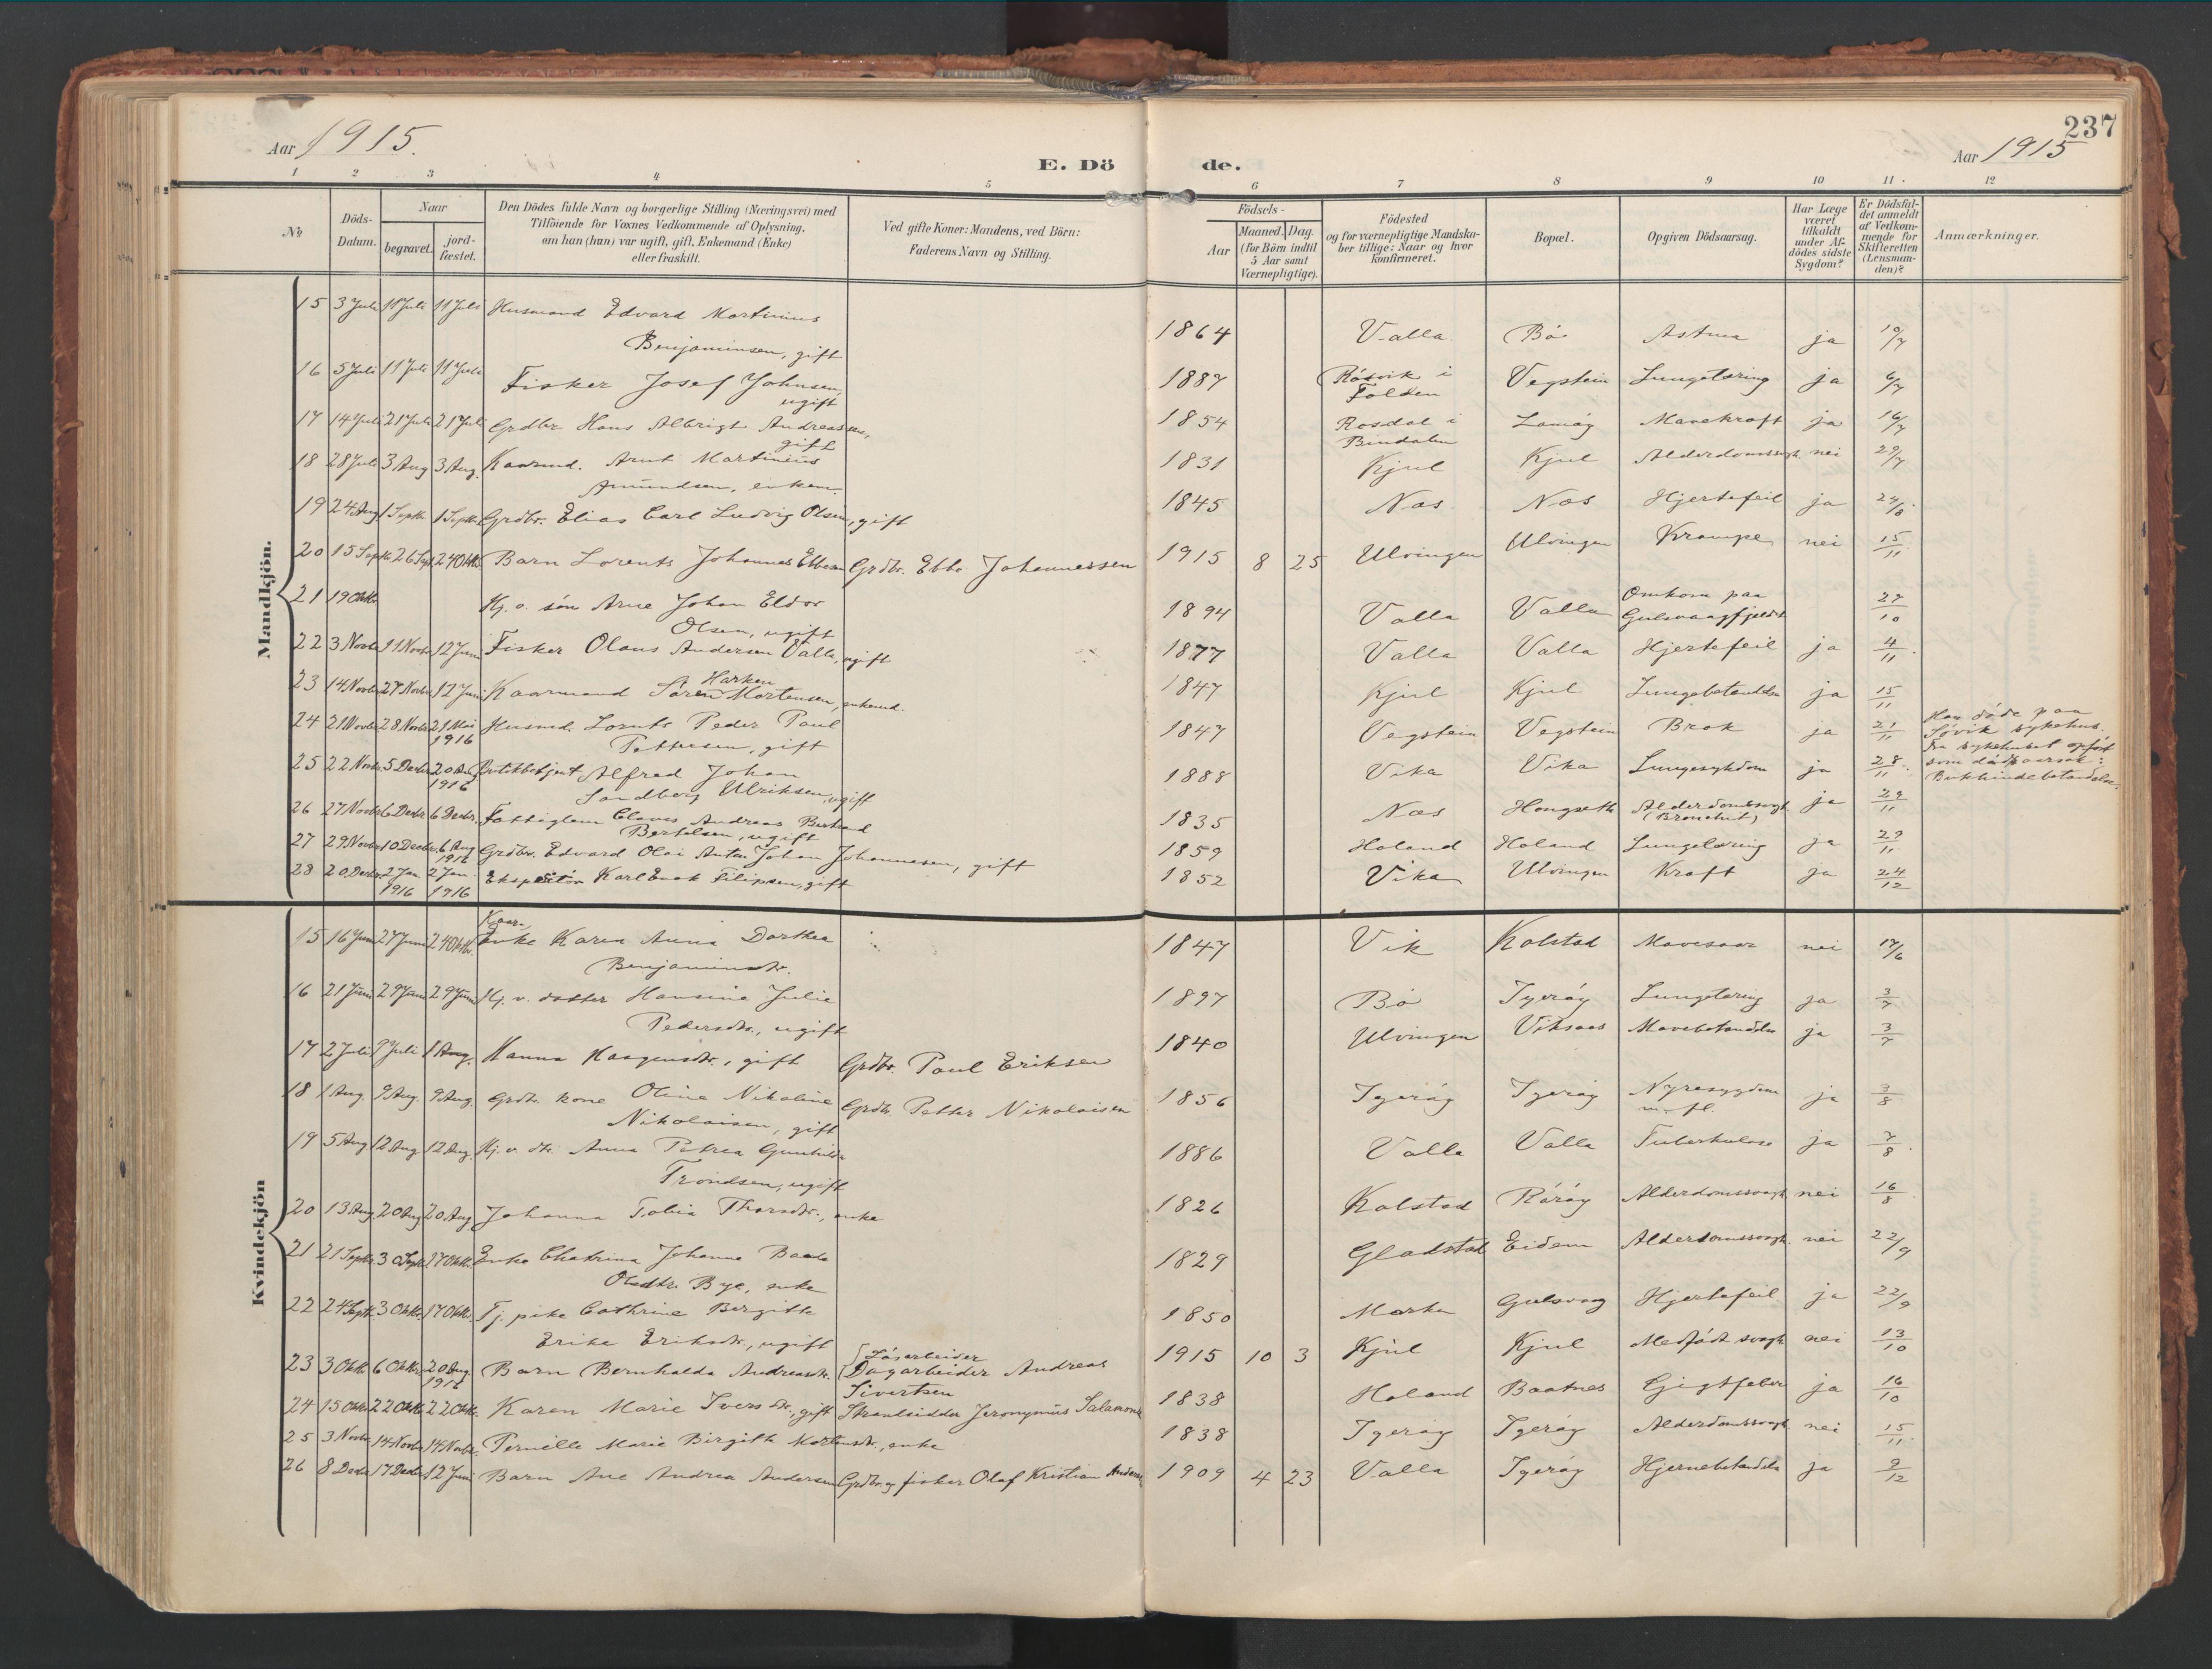 237
Aar 1915.
E. Dö de.
Aar 1915
1 2 3 4 5 6 7 8 9 10 11 12
№
Döds-Datum.
Naar
begravet.
jord-fæstet.
Den Dödes fulde Navn og borgerlige Stilling (Næringsvei) med
Tilföiende for Voxnes Vedkommende af Oplysning,
om han (hun) var ugift, gift, Enkemand (Enke)
eller fraskilt.
Ved gifte Koner: Mandens, ved Börn:
Faderens Navn og Stilling.
Födsels-
Aar
Maaned. Dag.
(for Börn indtil
5 Aar samt
Værnepligtige).
Födested
og for værnepligtige Mandska-
ber tillige: Naar og hvor
konfirmeret.
Bopæl.
Opgiven Dödsaarsag.
Har Læge
været
tilkaldt
under Af-
dödes sidste
Sygdom?
Er Dödsfal-
det anmeldt
af Vedkom-
mende for
Skifteretten
(Lensman-
den)?
Anmærkninger.
Mandkjön.
15 3 Juli 11 Juli 11 Juli Husmand Edvard Martinius
Benjaminsen, gift 1864 Valla Bø Astma ja 10/7
16 5 Juli 11 Juli 11 Juli Fisker Josef Johnsen,
ugift 1887 Røsvik i Folden Vegstein Lungetæring ja 6/7
17 14 Juli 21 Juli 21 Juli Grdbr Hans Albrigt Andreassen,
gift 1854 Rosdal i Bindalen Lamøy Mavekraft ja 16/7
18 28 Juli 3 Aug 3 Aug. Kaarmd. Arnt Martinius
Amundsen, enkem. 1831 Kjul Kjul Alderdomssvagh. nei 29/7
19 24 Aug 1 Septbr 1 Septbr Grdbr. Elias Carl Ludvig Olsen, gift 1845 Næs Næs Hjertefeil ja 24/8
20 15 Septbr 26 Sept 24 Oktbr. Barn Lorents Johannes Ebbesen Grdbr. Ebbe Johannessen 1915 8 25 Ulvingen Ulvingen Krampe nei 15/11
21 19 Oktbr Hj. v. søn Arne Johan Eldor
Olsen, ugift 1894 Valla Valla Omkom paa
Gulsvaagfjeldet 27/10
22 3 Novbr 11 Novbr 12 Juni Fisker Olaus Andersen Valla, ugift 1877 Valla Valla Hjertefeil ja 4/11
23 14 Novbr 27 Novbr 12 Juni Kaarmand Søren Harken Mortensen, enkemd. 1847 Kjul Kjul Lungebetændelse ja 15/11
24 21 Novbr 28 Novbr 21 Mai 1916 Husmd. Lornts Peder Paul
Pettersen, gift 1847 Vegstein Vegstein Brok ja 21/11
Han døde paa
Søvik sykehus,
Fra sykehuset opført
som dødsaarsak:
Bukhindebetændelse.
25 22 Novbr 5 Decbr 20 Aug 1916 Butikbetjent Alfred Johan
Sandberg Ulriksen, ugift 1888 Vika Vika Lungesykdom ja 28/11
26 27 Novbr 6 Decbr 6 Decbr. Fattiglem Claus Andreas
Bertelsen, ugift 1835 Næs Hongseth Alderdomssvagh
(Bronchit) ja 29/11
27 29 Novbr 10 Decbr. 6 Aug 1916 Grdbr. Edvard Olai Anton Johan Johannesen, gift 1859 Holand Holand Lungetæring ja 29/11
28 20 Decbr. 2 Jan 1916 2 Jan 1916 Ekspeditør Karl Enok Filipsen, gift 1852 Vika Ulvingen Kræft ja 24/12
Kvindekjön
15 16 Juni 27 Juni 24 Oktbr. Kaar-
Enke Karen Anna Dorthea
Benjaminsdtr. 1847 Vik Kolstad Mavesaar nei 17/6
16 21 Juni 29 Juni 29 Juni Hj. v. datter Hansine Julie
Pedersdtr., ugift 1897 Bø Tgerøy Lungetæring ja 3/7
17 2 Juli 9 Juli 1 Aug. Hanna Haagensdtr., gift Grdbr. Paul Eriksen 1840 Ulvingen Viksaas Mavebetændelse ja 3/7
18 1 Aug. 9 Aug. 9 Aug. Grdbr. kone Oline Nikoline
Nikolaisen, gift Grdbr. Petter Nikolaisen 1856 Tgerøy Tgerøy Nyresygdom
m. fl. ja 3/8
19 5 Aug 12 Aug 12 Aug. Hj. v. dtr. Anna Petrea Gunhilda
Trondsen, ugift 1886 Valla Valla Tuberkulose ja 7/8
20 13 Aug. 20 Aug 20 Aug Johanna Tobia Thorsdtr., enke 1826 Kolstad Rørøy Alderdomssvagh nei 16/8
21 21 Septbr. 30 Septbr 17 Oktbr. Enke Chatrina Johanna
Olsdtr. Bye, enke 1829 Gladstad Eidem Alderdomssvagh. nei 22/9
22 24 Septbr. 3 Oktbr. 17 Oktbr. Tj. pike Cathrine Birgitte
Erike Eriksdtr., ugift 1850 Marken Gulsvaag Hjertefeil ja 22/9
23 3 Oktbr. 6 Oktbr. 20 Aug. 1916 Barn Bernhalda Andreasdtr. Løsarbeider
Dagarbeider Andreas
Sivertsen 1915 10 3 Kjul Kjul Medfødt svagh nei 13/10
24 15 Oktbr. 22 Oktbr. 22 Oktbr. Karen Marie Iversdtr., gift Strandsidder Jeronymus Salamons. 1838 Holand Baatnes Gigtfeber ja 16/10
25 3 Novbr. 14 Novbr 14 Novbr. Pernille Marie Birgitte Mortensdtr., enke 1838 Tgerøy Tgerøy Alderdomssvagh nei 15/11
26 8 Decbr. 17 Decbr 12 Juni Barn Ane Andrea Andersen Grdbr. og fisker Olaf Kristian Andersen 1909 4 23 Valla Tgerøy Hjernebetændelse ja 9/12